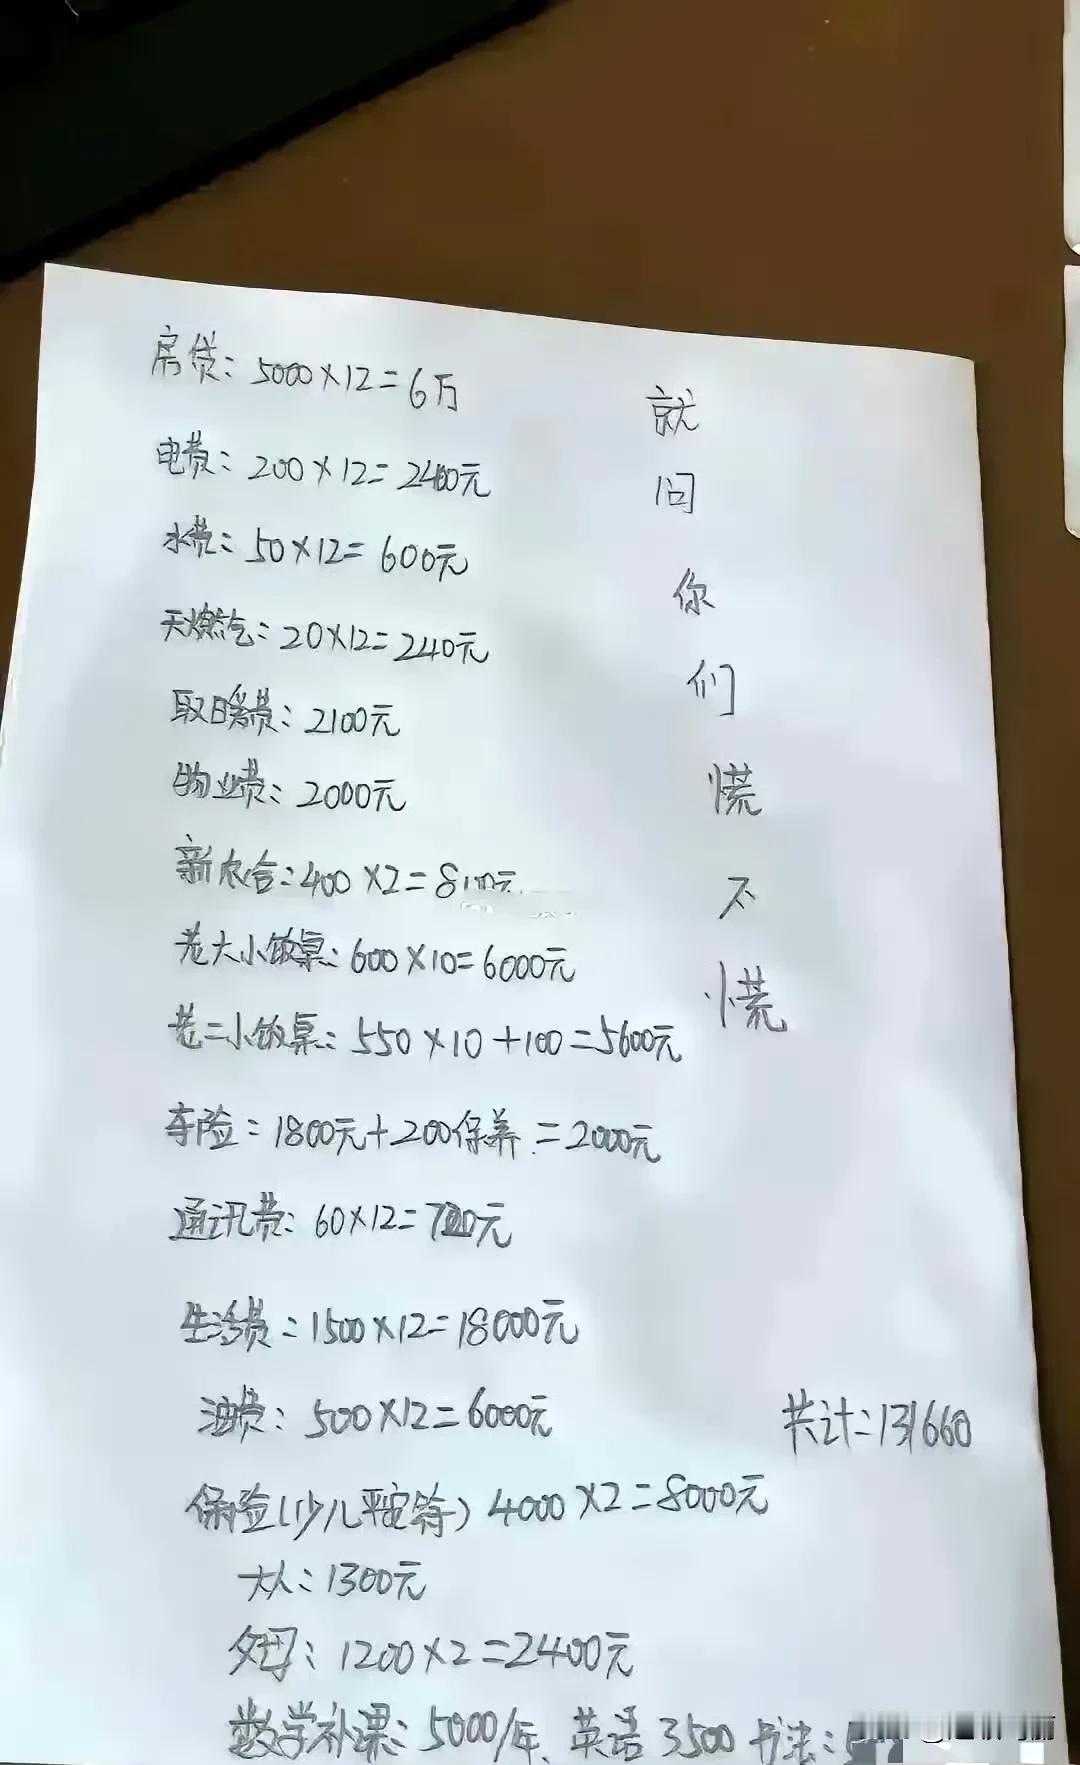 房贷：5000×12=6万
电费：200×12=2400元
水费：50×12=600元
天燃气：20×12=240元
取暖费：2100元
物业费：2000元
新农合：400×2=800元
老大小饭桌：600×10=6000元
老二小饭桌：550×10+100=5600元
车险：1800元+200保养=2000元
通讯费：60×12=720元
生活费：1500×12=18000元
油费：500×12=6000元
保险（少儿平安符）4000×2=8000元
大人：1300元
父母：1200×2=2400元
数学补课：5000/年、英语3500书法：
就问你们慌不慌
共计：131660